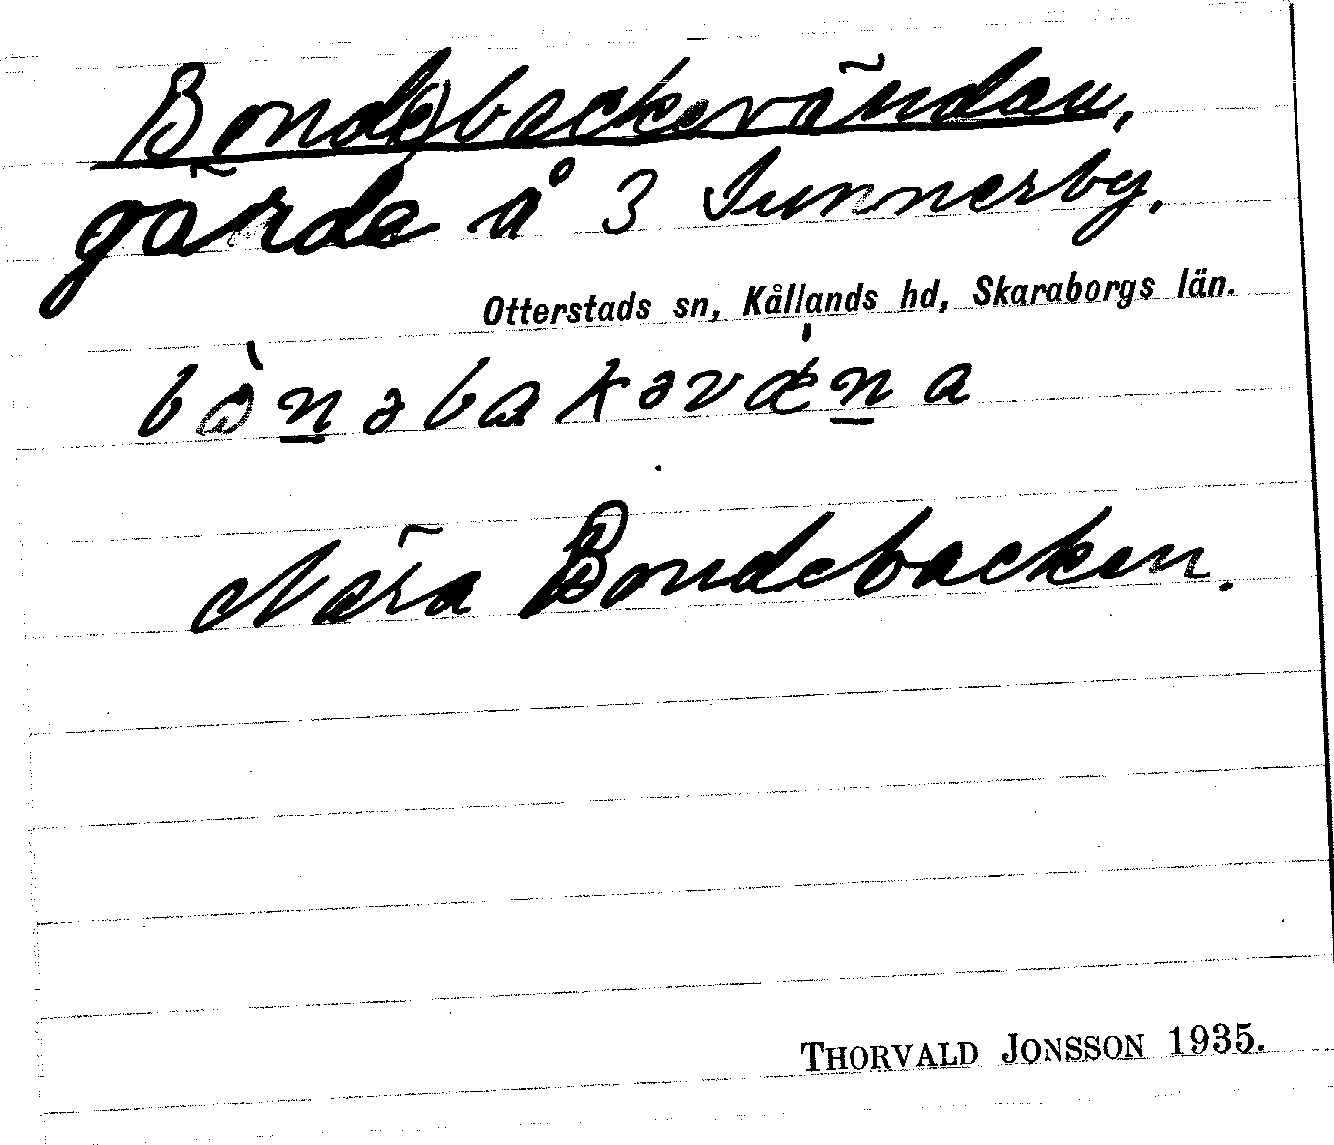 Bond(e)backevändan,
gärde å 3 Sunnerby.
Otterstads sn, Kållands hd, Skaraborgs län.
bo̊̀n̲əbakəvæ̍n̲a
Nära Bondebacken.
THORVALD JONSSON 1935.